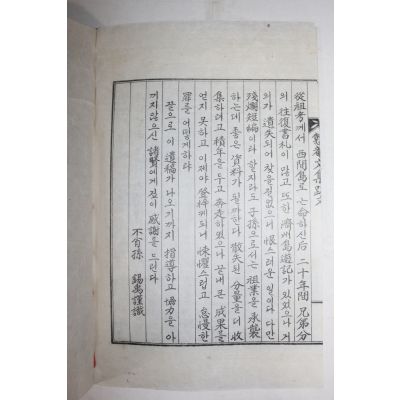 從祖考께서 西間島로 亡命하신后 二十年間 兄弟分
의 往復書札이 많고 또한 濟州島遊記가 있었으나 거
의가 遺失되어 찾을길없으니 恨스러운 일이다 다만
殘爛短編이라 할지라도 子孫으로서는 祖業을 承襲
하는데 좋은 資料가 될까한다 散失된 分量을 더 收
集하려고 積年을 두고 奔走하였으나 끝내 큰 成果를
얻지 못하고 이제야 登梓케되니 悚懼스럽고 怠慢한
罪를 어떻게하랴
끝으로 이 遺稿가 나오기까지 指導하고 協力을 아
끼지않으신 諸賢에게 깊이 感謝를 드린다
不肖孫 錫禹謹識